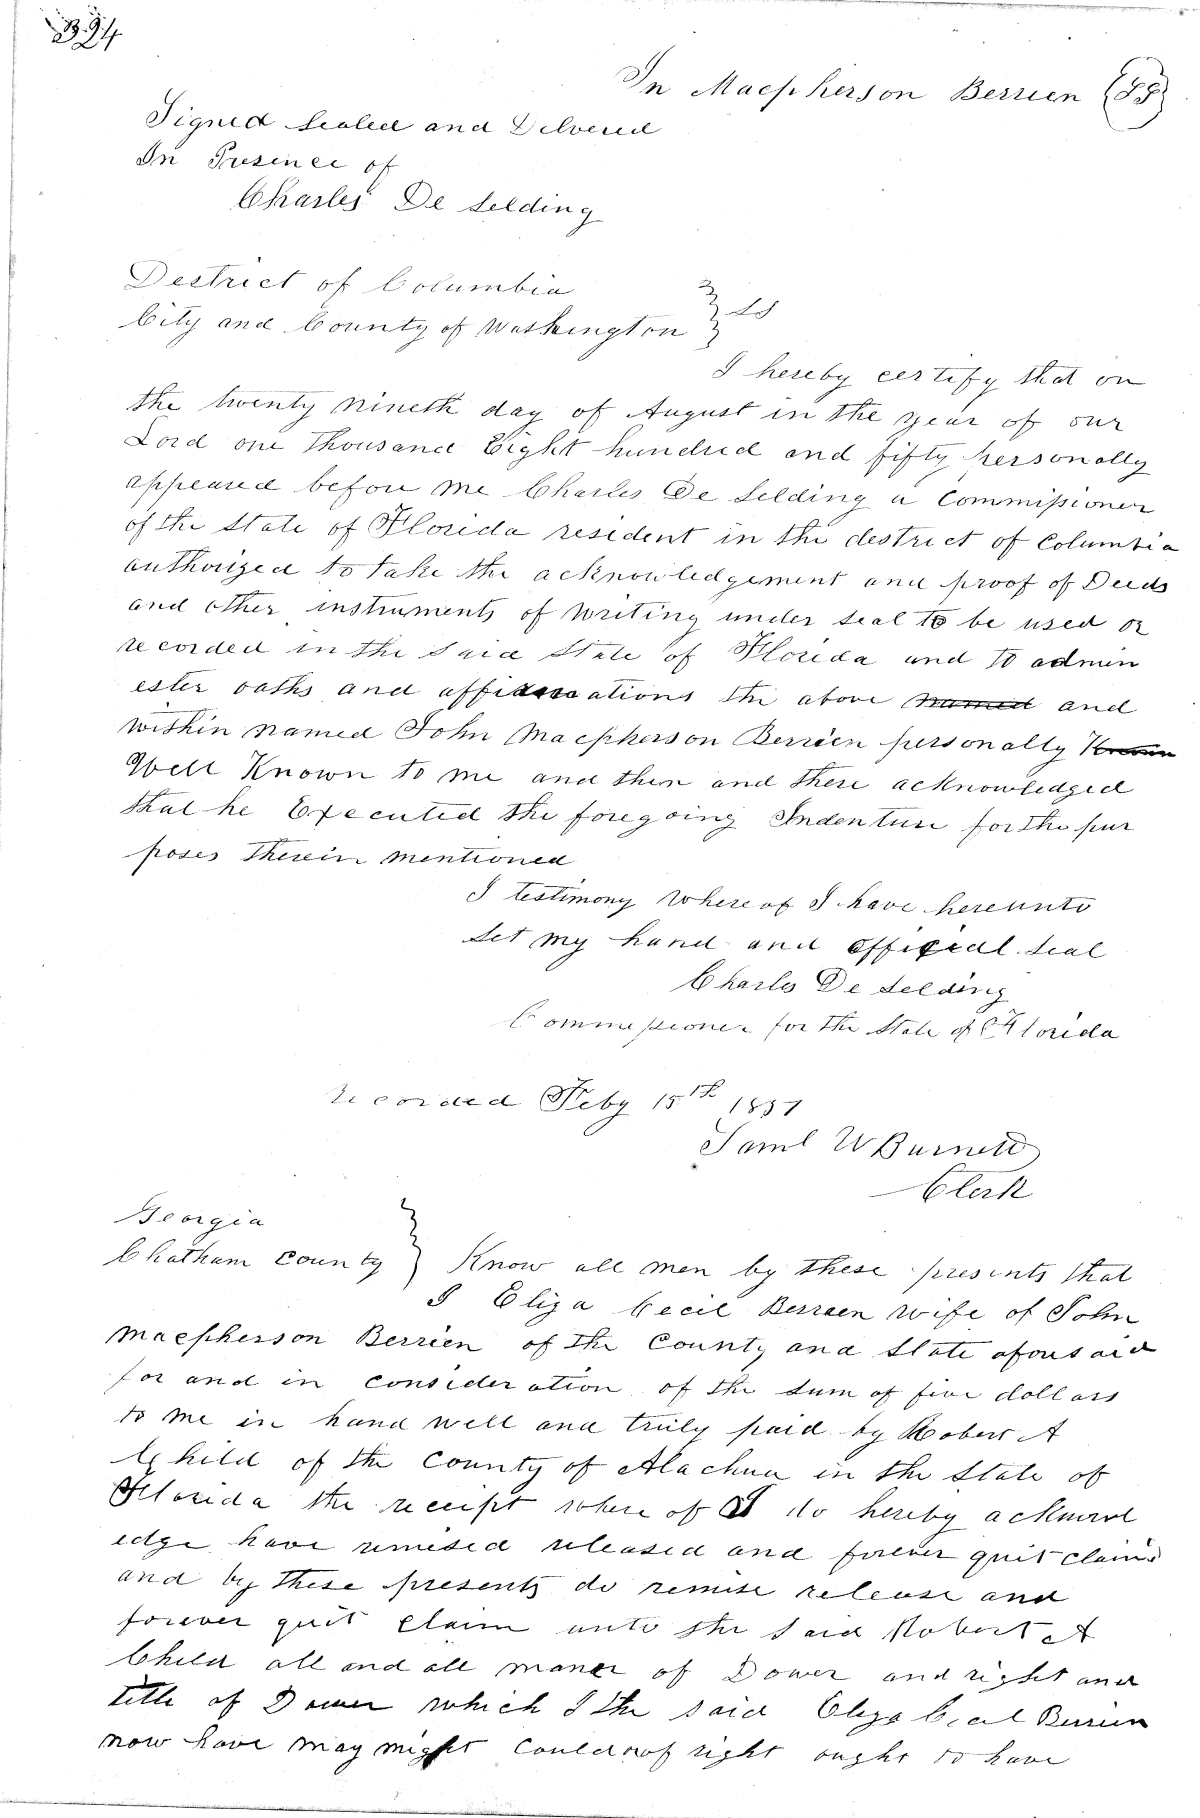 394
Jn Macpherson Berrien (SS)
Signed Sealed and Delvered
In Presence of
Charles De Selding
Destrict of Columbia
City and County of Washington } SS
I hereby certify that on
the twenty nineth day of August in the year of our
Lord one thousand Eight hundred and fifty personally
appeared before me Charles De Selding a Commissioner
of the State of Florida resident in the destrict of Columbia
authorized to take the acknowledgement and proof of Deeds
and other instruments of writing under seal to be used or
recorded in the said State of Florida and to admin
ester oaths and affirmations the above named and
within named John Macpherson Berrien personally Known
Well Known to me and then and there acknowledged
that he Executed the foregoing Indenture for the pur
poses therein mentioned
I testimony where of I have hereunto
set my hand and official seal
Charles De Selding
Commissioner for the State of Florida
recorded Feby 15th 1857
Saml W Burnett
Clerk
Georgia
Chatham County } Know all men by these presents that
I Eliza Cecil Berrien wife of John
Macpherson Berrien of the County and State aforesaid
for and in consideration of the sum of five dollars
to me in hand well and truly paid by Robert A
Child of the County of Alachua in the State of
Florida the receipt where of I do hereby acknowl
edge have remised released and forever quit claim
and by these presents do remise release and
forever quit claim unto the said Robert A
Child all and all maner of Dower and right and
title of Dower which I the said Eliza Cecil Berrien
now have may might could or of right ought to have